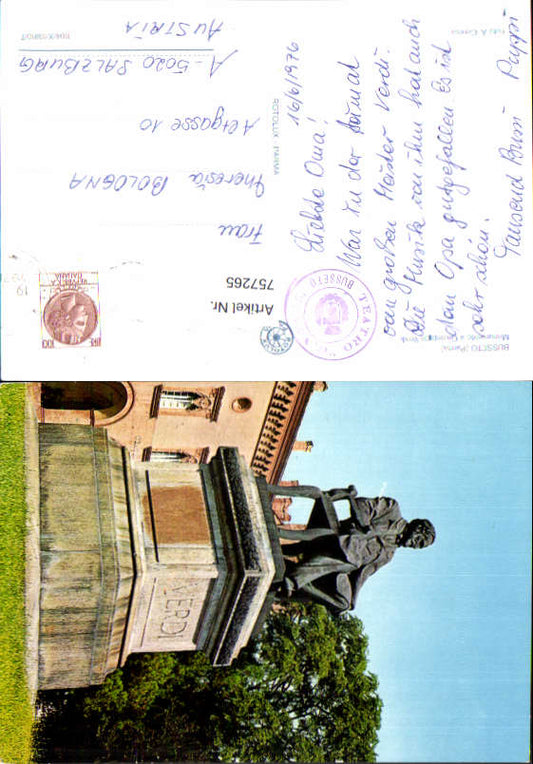 BUSSETO (Parma)
Monumento a Giuseppe Verdi
16/6/1976
Liebste Oma!
War in der Heimat
vom großen Meister Verdi.
Die Musik von ihm hat auch
dem Opa gutgefallen. Es ist
sehr schön.
Tausend Bussi Puppi
ROTOLUX - PARMA
TEATRO VERDI
BUSSETO
Artikel Nr.
757265
REPUBBLICA
ITALIANA
LIRE 100
19
Frau
Theresia BOLOGNA
Altgasse 10
A-5020 SALZBURG
AUSTRIA
VERDI